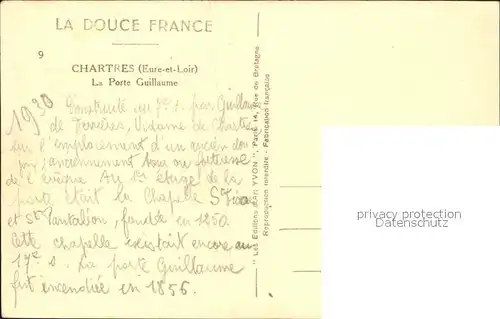 LA DOUCE FRANCE
9
CHARTRES (Eure-et-Loir)
La Porte Guillaume
1930
Construite au s. par Guillaume
de Ferrières, Vidame de Chartres
sur l'emplacement d'un ancien don
jon, anciennement tour ou forteresse
de l'évêque Au 1er étage de la
porte était la Chapelle St
et St Pantaléon, fondée en 1250.
Cette chapelle existait encore au
17e s. La porte Guillaume
fut incendiée en 1856.
" Les Editions d'Art YVON ", Paris 14, Rue de Bretagne
Reproduction interdite - Fabrication française
privacy protection
Datenschutz